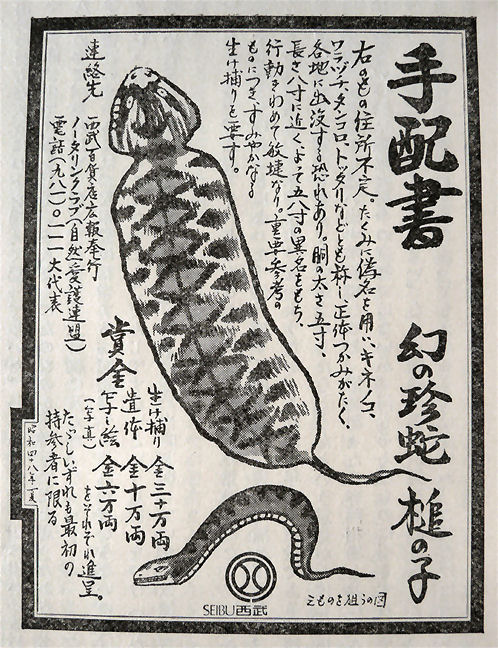 手配書
幻の珍蛇 槌の子
右のもの住所不定。たくみに偽名を用い、キネノコ、
ワニッチ、タンコロ、トックリなどとも称し正体つかみがたく、
各地に出没する恐れあり。胴の太さ五寸、
長さ八寸に近く、よって五八寸の異名をもち、
行動きわめて敏捷なり。重要参考の
ものにつき、すみやかなる
生け捕りを要す。
連絡先
西武百貨店広報奉行
ノータリンクラブ(自然愛護連盟)
電話(九八一)〇一一一大代表
賞金
生け捕り 金三十万両
遺体 金十万両
写し絵(写真) 金六万両
をそれぞれ進呈。
たゞしいずれも最初の
持参者に限る
昭和四十八年夏
SEIBU西武
えものを狙うの図